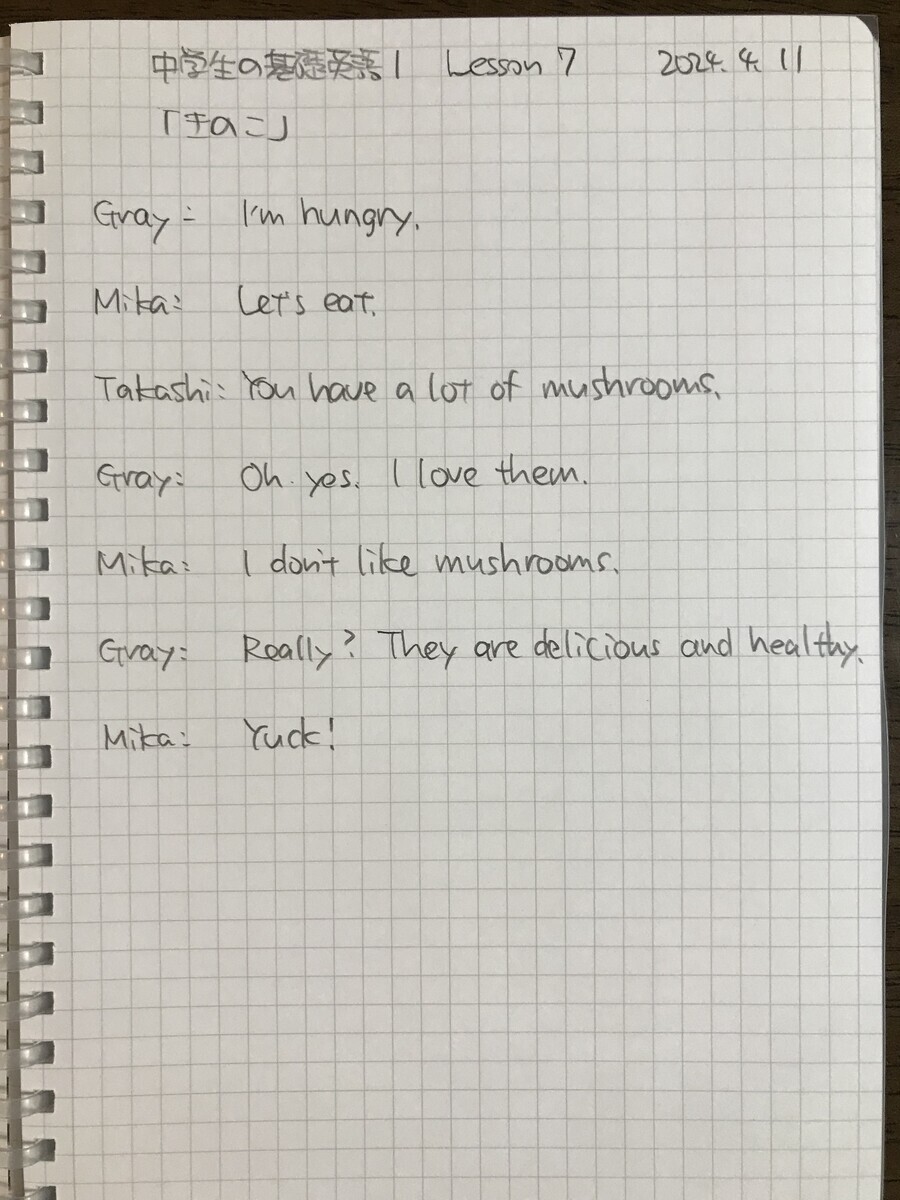 中学生の基礎英語1 Lesson 7 2024.4.11
「きのこ」
Gray: I'm hungry.
Mika: Let's eat.
Takashi: You have a lot of mushrooms.
Gray: Oh. yes. I love them.
Mika: I don't like mushrooms.
Gray: Really? They are delicious and healthy.
Mika: Yuck!